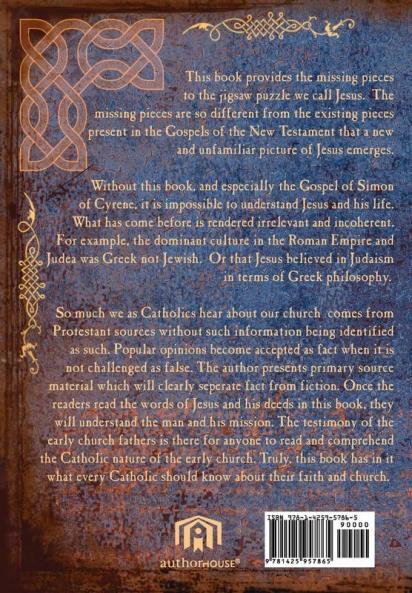 This book provides the missing pieces
to the jigsaw puzzle we call Jesus. The
missing pieces are so different from the existing pieces
present in the Gospels of the New Testament that a new
and unfamiliar picture of Jesus emerges.
Without this book, and especially the Gospel of Simon
of Cyrene, it is impossible to understand Jesus and his life.
What has come before is rendered irrelevant and incoherent.
For example, the dominant culture in the Roman Empire and
Judea was Greek not Jewish. Or that Jesus believed in Judaism
in terms of Greek philosophy.
So much we as Catholics hear about our church comes from
Protestant sources without such information being identified
as such. Popular opinions become accepted as fact when it is
not challenged as false. The author presents primary source
material which will clearly seperate fact from fiction. Once the
readers read the words of Jesus and his deeds in this book, they
will understand the man and his mission. The testimony of the
early church fathers is there for anyone to read and comprehend
the Catholic nature of the early church. Truly, this book has in it
what every Catholic should know about their faith and church.
authorHOUSE®
ISBN 978-1-4259-5786-5
90000
9 781425 957865